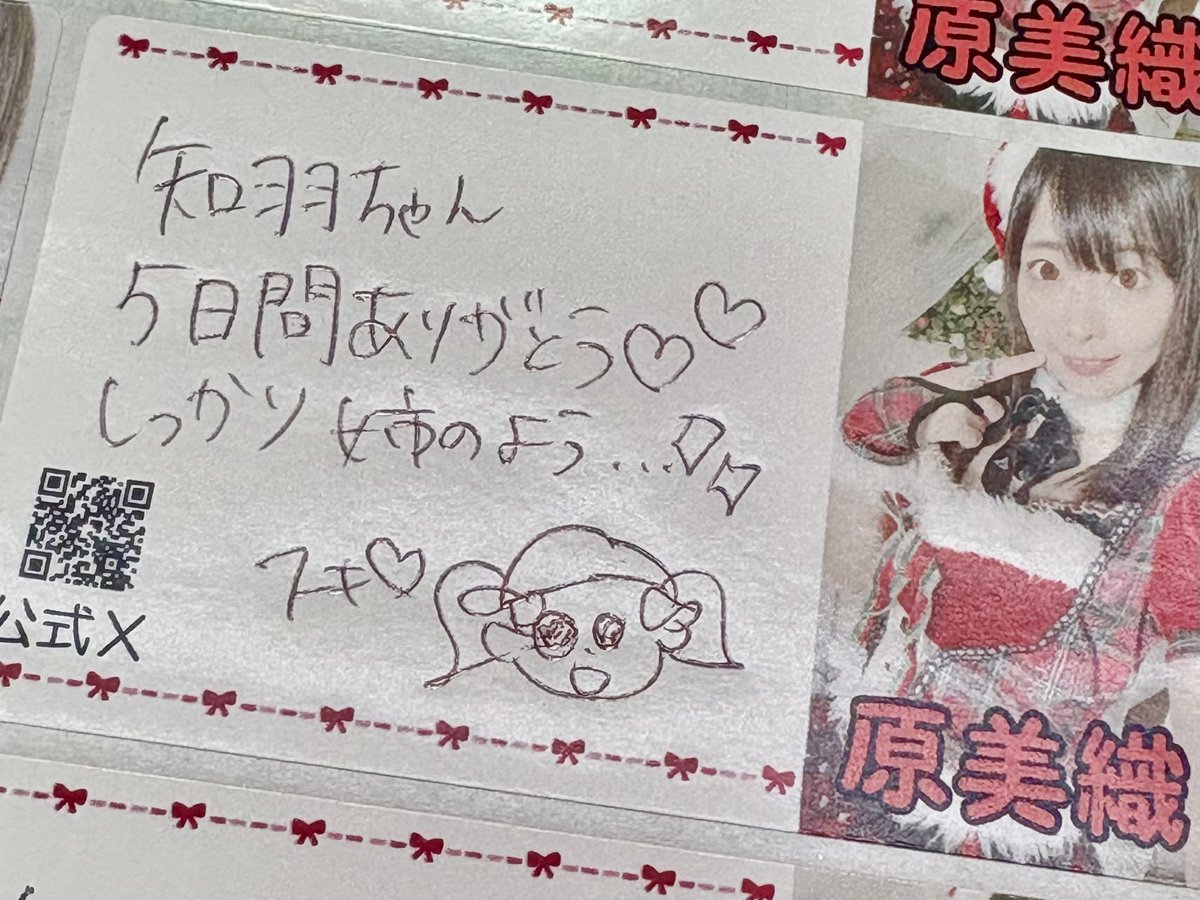 原美織
知羽ちゃん
5日間ありがとう♡♡
しっかり姉のよう...
スキ♡
公式X
原美織